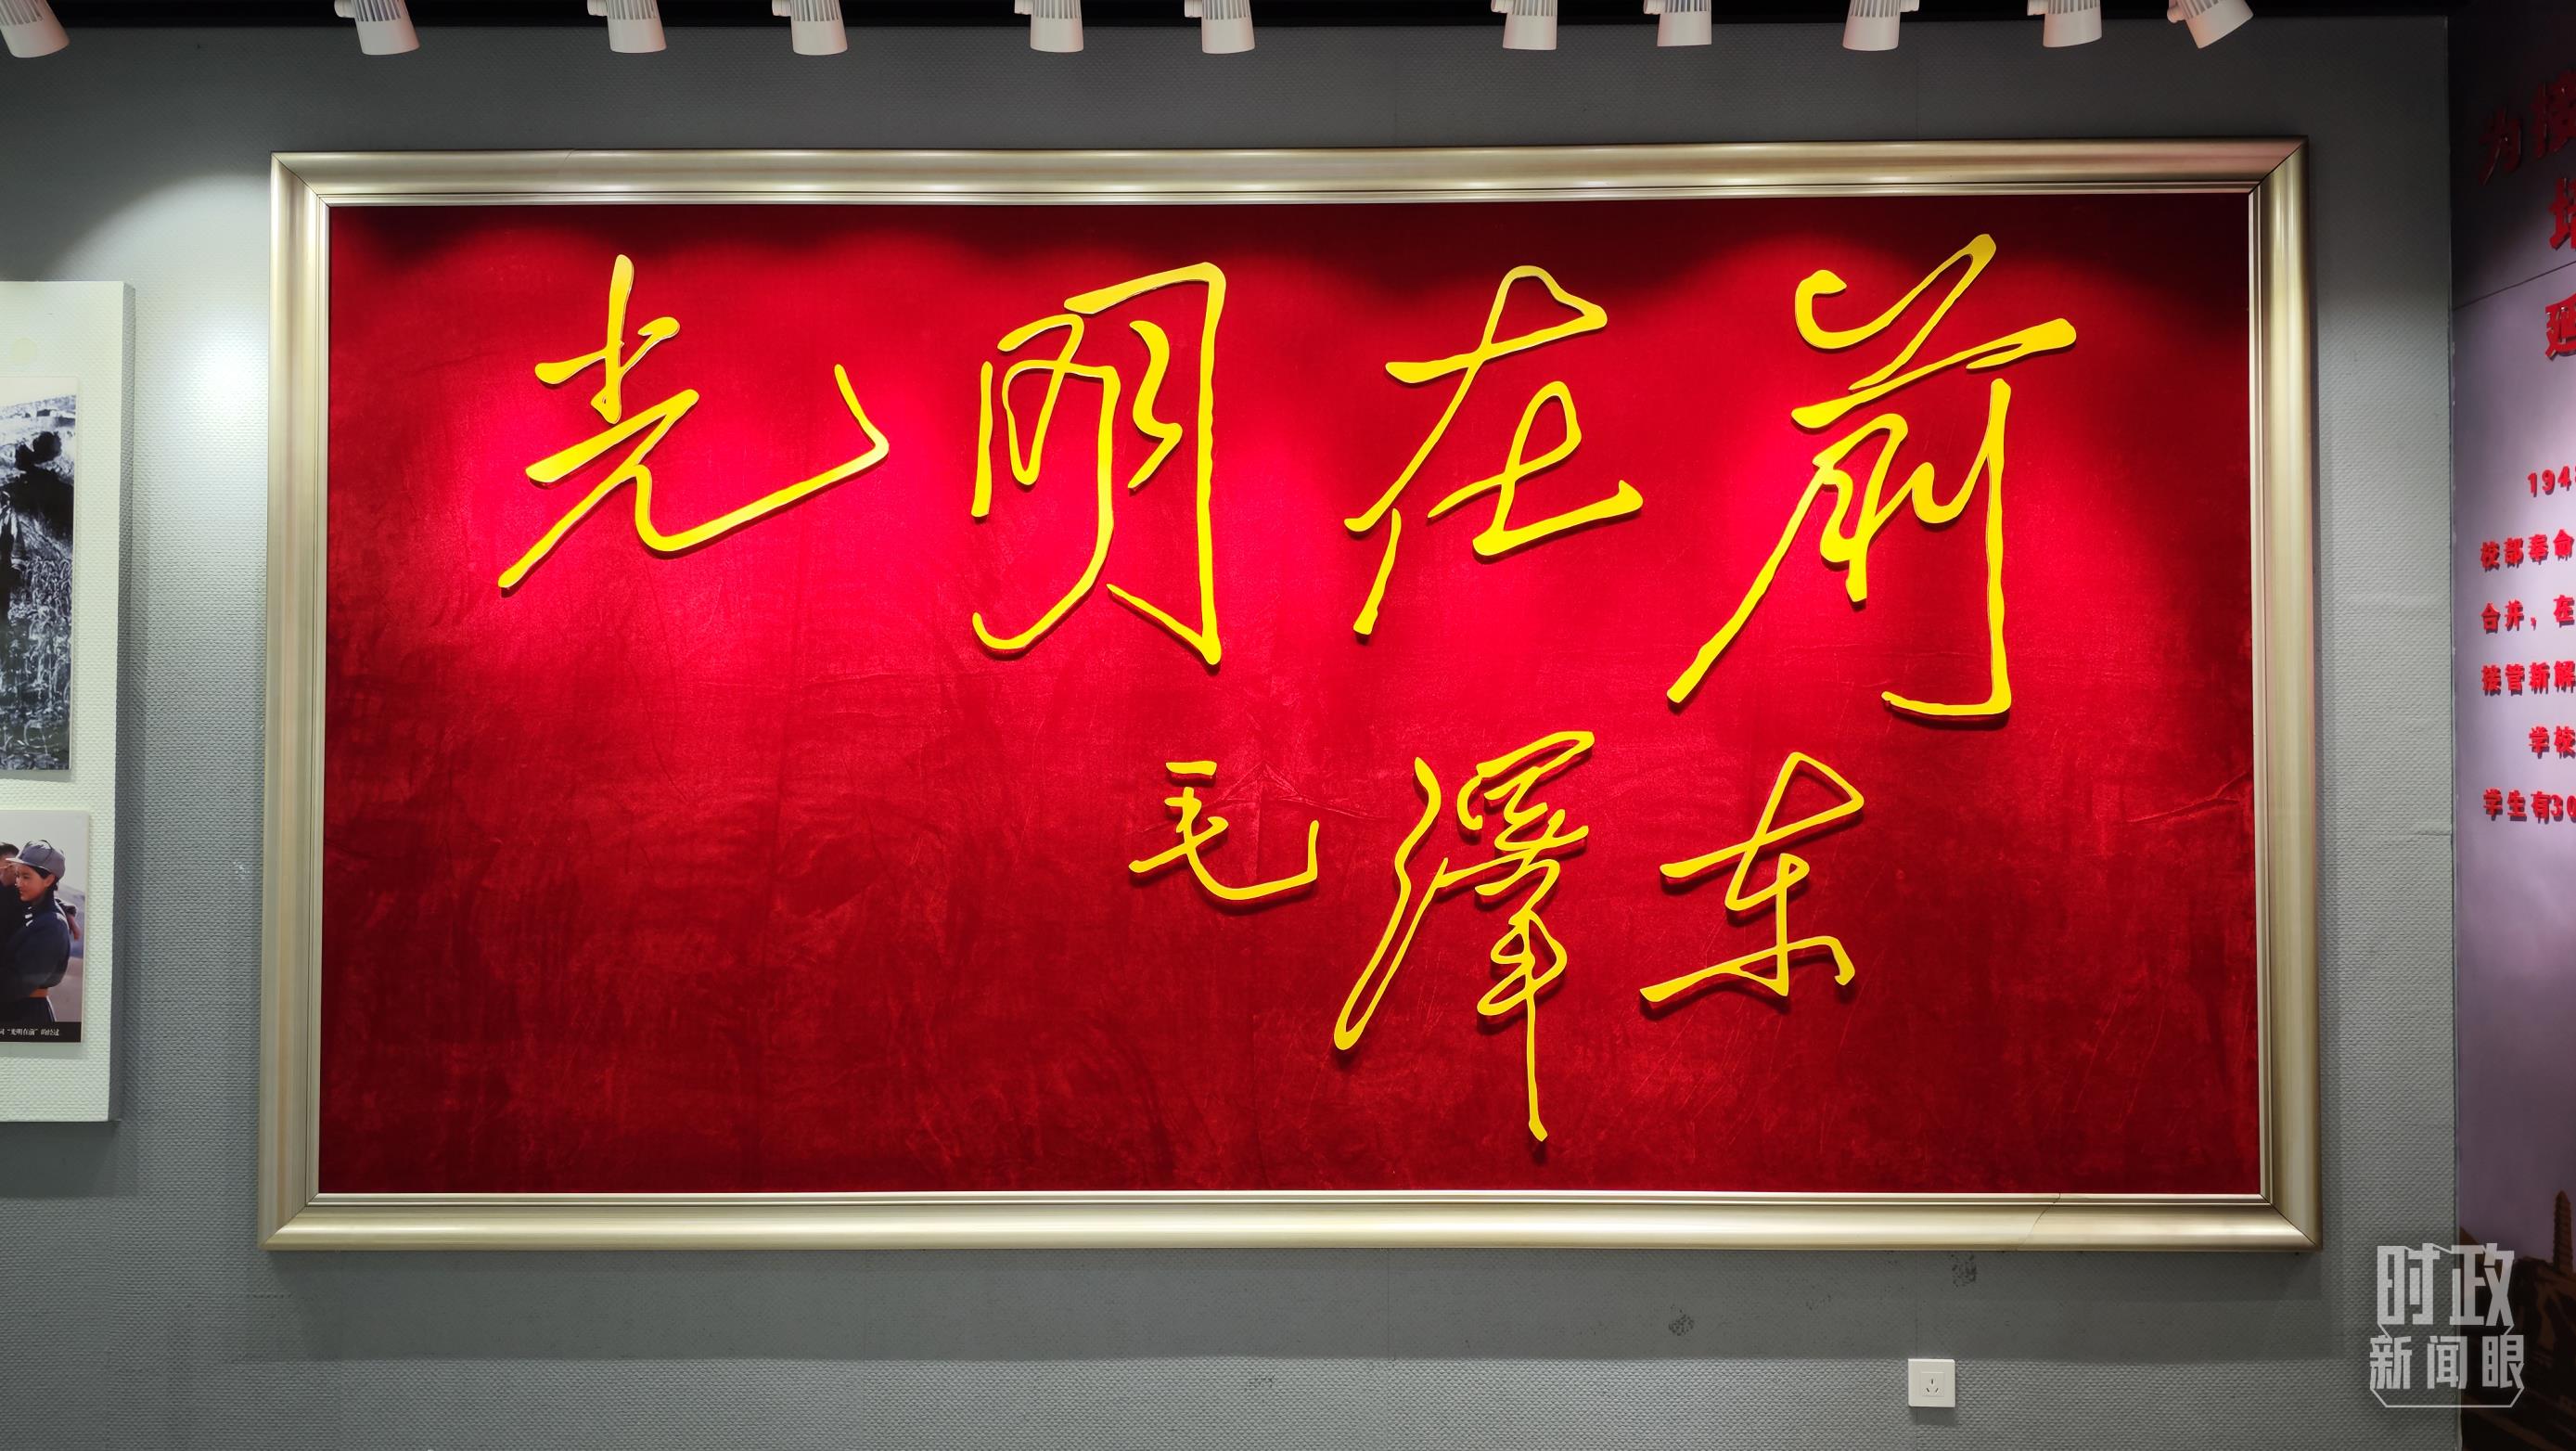 光明在前
毛澤东
词“光明在前”的经过
194
校部奉命
合并，在
接管新解
学校
学生有30
时政
新闻眼